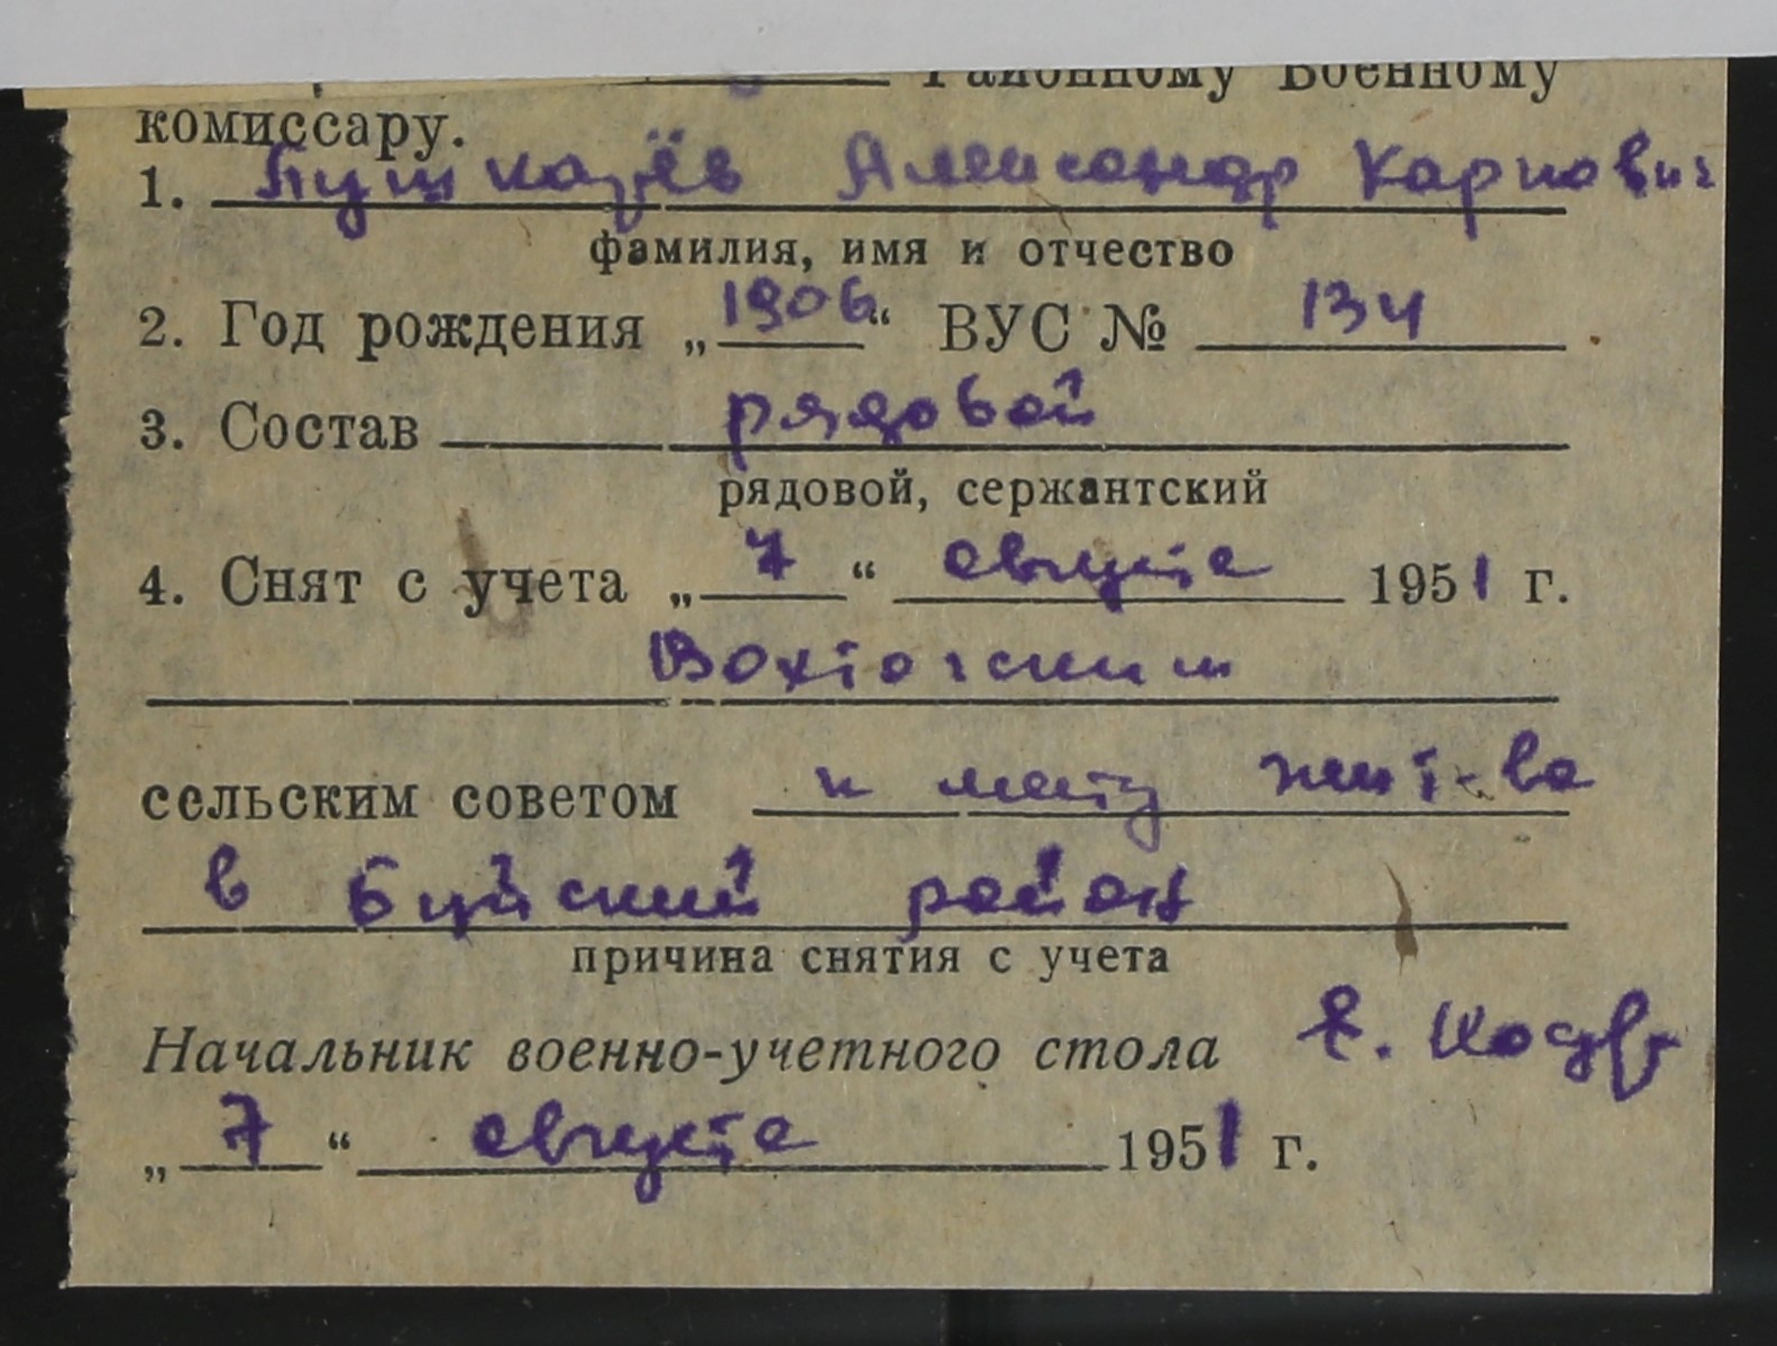 Районному Военному
комиссару.
1. Пушкарёв Александр Карпович
фамилия, имя и отчество
2. Год рождения „1906“ ВУС № 134
3. Состав рядовой
рядовой, сержантский
4. Снят с учета „7“ августа 1951 г.
Вохтогским
сельским советом к месту жит-ва
в Буйский район
причина снятия с учета
Начальник военно-учетного стола Е.
„7“ августа 1951 г.